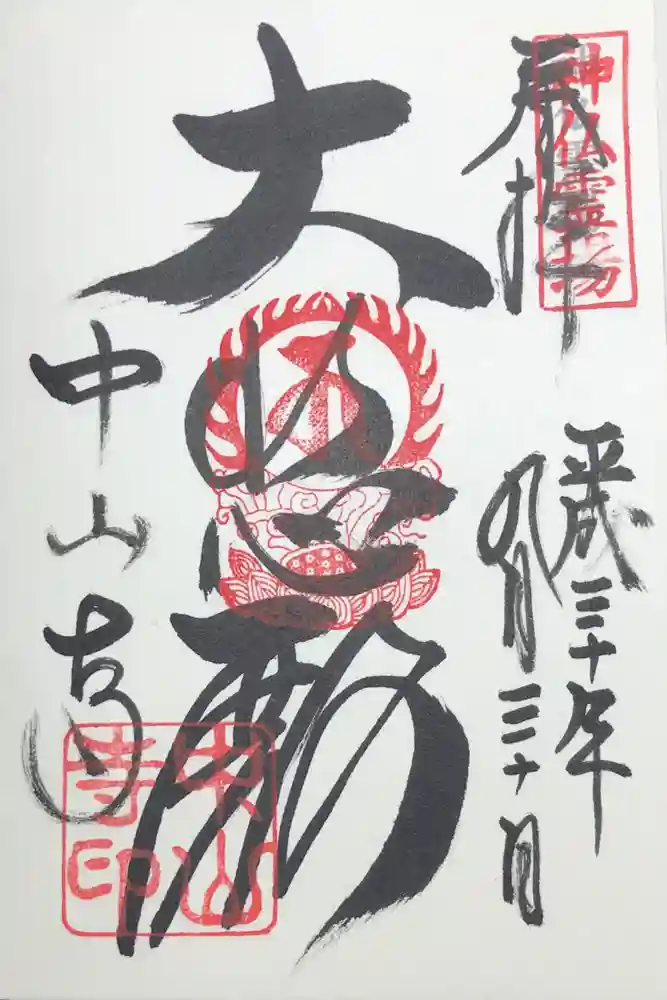 神仏霊場
奉拝
平成三十年
九月三十日
大悲殿
中山寺
中山
寺印